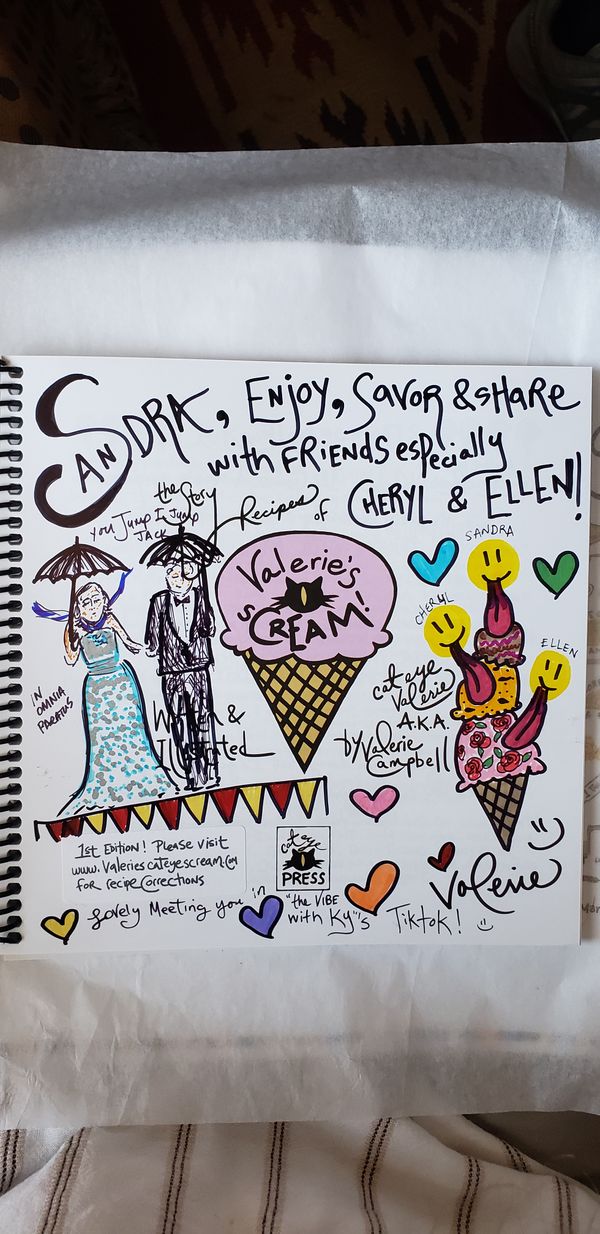 SANDRA, ENJOY, SAVOR & SHARE
with FRiENDS especially
CHERYL & ELLEN!
the Story
Recipes of
you Jump I Jump
JACK
Valerie's
sCREAM!
SANDRA
CHERYL
ELLEN
IN
OMNIA
PARATUS
cat eye
Valerie
A.K.A.
by Valerie
Campbell
Written &
Illustrated
1st Edition! Please visit
www.Valeriescateyescream.com
for recipe corrections
cat eye
PRESS
Valerie
Lovely Meeting you in "the VIBE
with Ky"'s Tiktok!